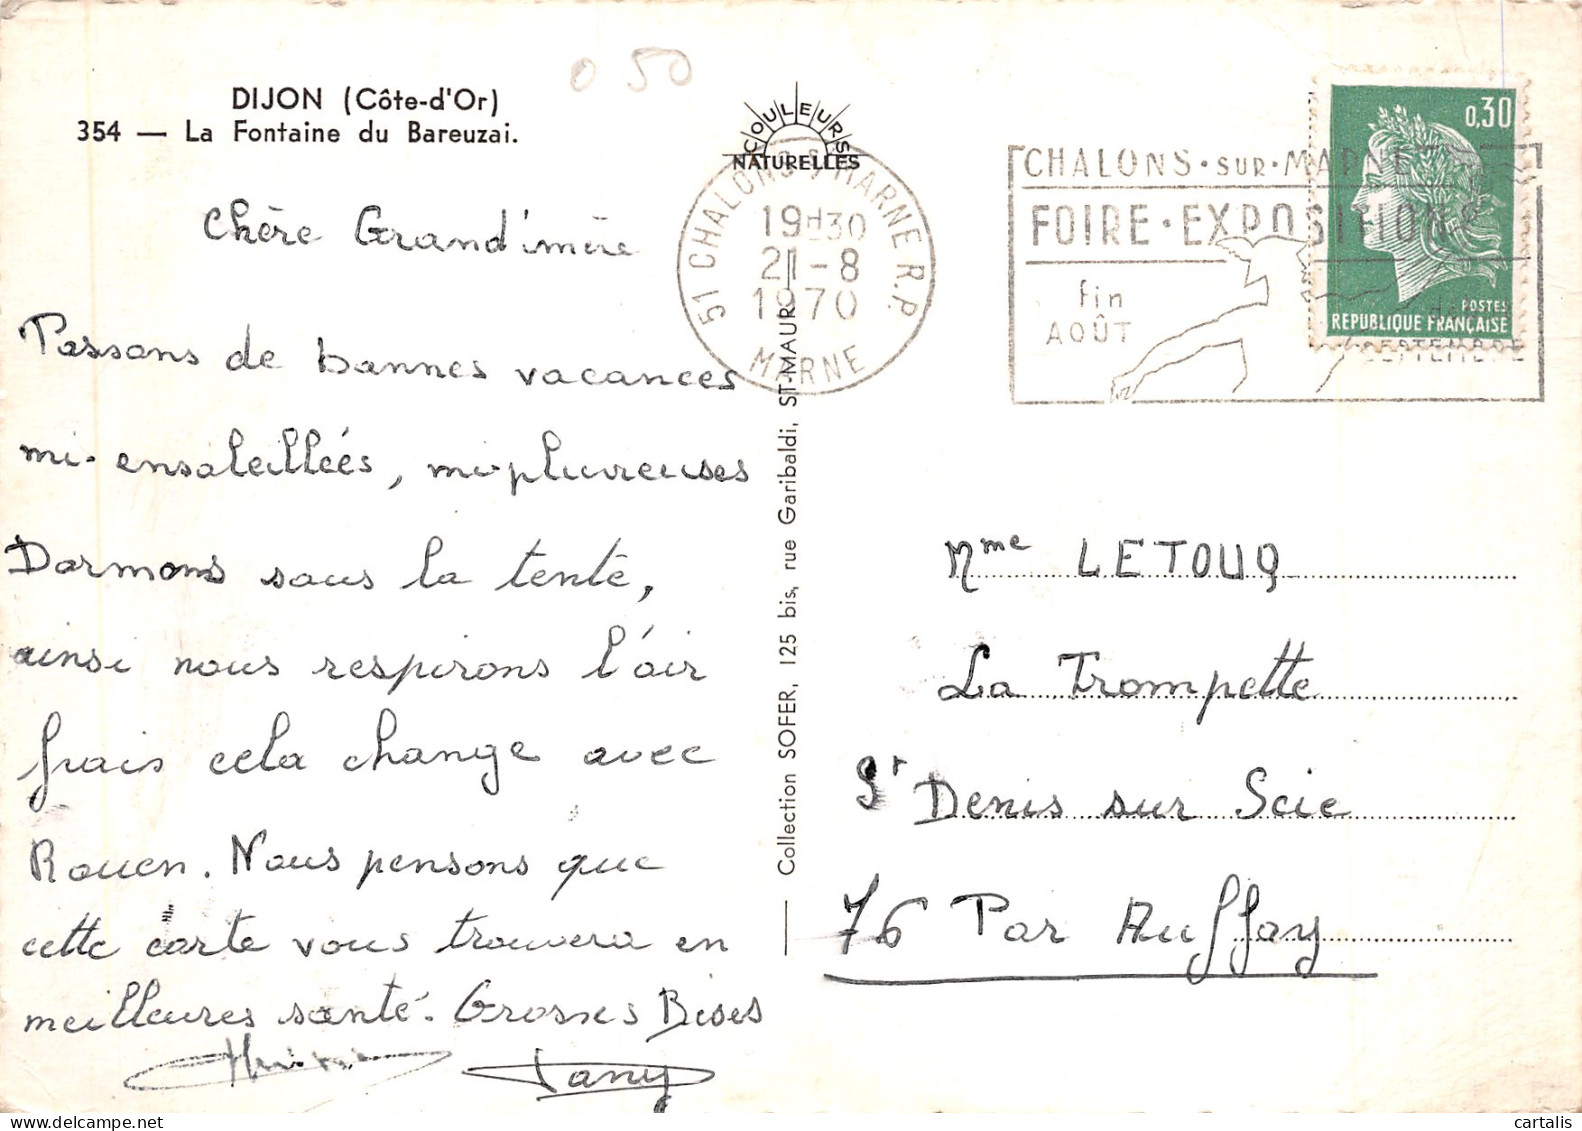 0 50
DIJON (Côte-d'Or)
354 — La Fontaine du Bareuzai.
COULEURS
NATURELLES
51 CHALONS S MARNE R.P.
19H30
21-8
1970
MARNE
CHALONS·SUR·MARNE
FOIRE·EXPOSITION
fin
AOÛT
SEPTEMBRE
0,30
POSTES
REPUBLIQUE FRANÇAISE
Chère Grand'mère
Passons de bonnes vacances
mi-ensoleillées, mi-pluvreuses
Dormons sous la tente,
ainsi nous respirons l'air
frais cela change avec
Rouen. Nous pensons que
cette carte vous trouvera en
meilleures santé. Grosses Bises
Dany
Collection SOFER, 125 bis, rue Garibaldi, ST-MAUR
Mme LETOUQ
La Trompette
St Denis sur Scie
76 Par Auffay
cartalis